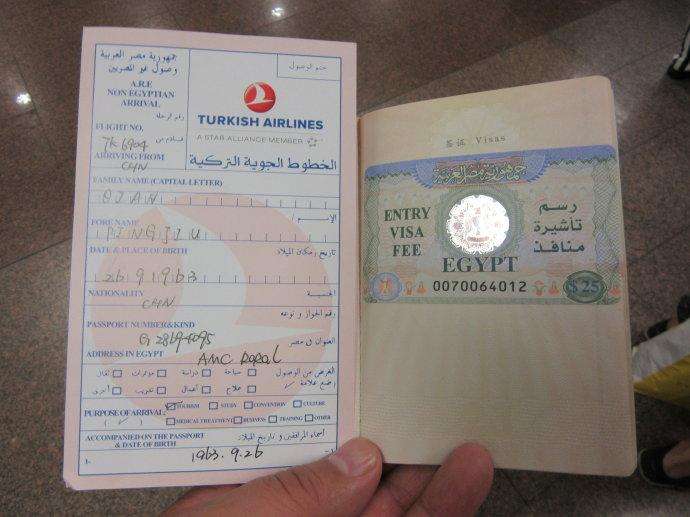 جمهورية مصر العربية
وصول غير المصريين
ختم الوصول
A.R.E
NON EGYPTIAN
ARRIVAL
رقم الرحلة
TURKISH AIRLINES
A STAR ALLIANCE MEMBER
FLIGHT NO. TK 6904
قادم من
الخطوط الجوية التركية
ARRIVING FROM CHN
FAMILY NAME (CAPITAL LETTER)
QIAN
الإسم
FORE NAME
PINGJIU
DATE & PLACE OF BIRTH
تاريخ ومكان الميلاد
26 9 1963
NATIONALITY
الجنسية
CHN
رقم الجواز و نوعه
PASSPORT NUMBER&KIND
العنوان فى مصر
ADDRESS IN EGYPT
AMC ROPAL
الغرض من الوصول
سياحة دراسة مؤتمرات
ضع علامة ✓
علاج أعمال تدريب أخرى
PURPOSE OF ARRIVAL:
(✓)
TOURISM STUDY CONVENTION CULTURE
MEDICAL TREATMENT BUSINESS TRAINING OTHER
ACCOMPANIED ON THE PASSPORT
& DATE OF BIRTH
أسماء المرافقين و تاريخ الميلاد
1963. 9. 26
签证 Visas
جمهورية مصر العربية
ENTRY
VISA
FEE
رسم
تأشيرة
منافذ
EGYPT
0070064012
$ 25